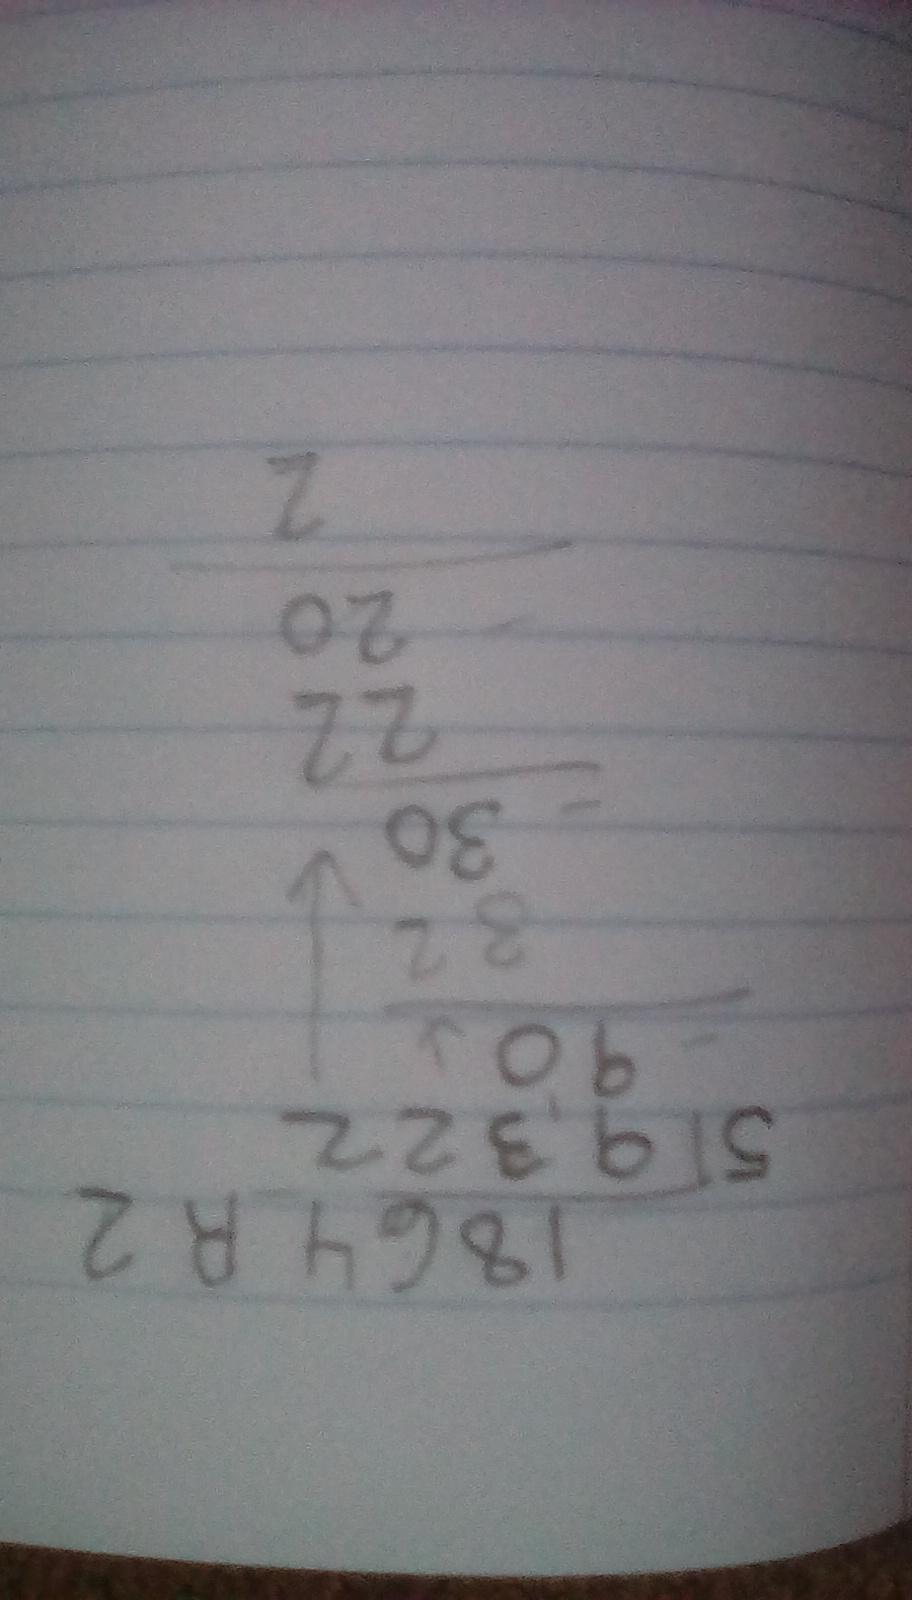 1864 R 2
5|9,322
- 90
32
- 30
22
- 20
2